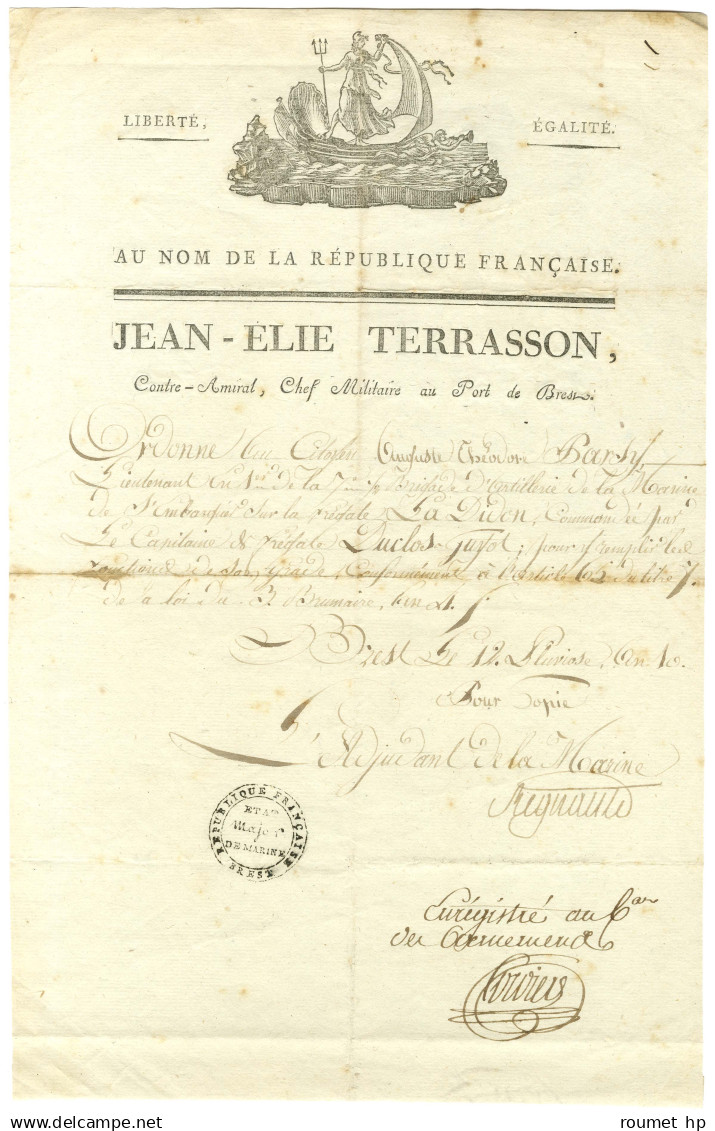 LIBERTÉ,
ÉGALITÉ.
AU NOM DE LA RÉPUBLIQUE FRANÇAISE.
JEAN-ÉLIE TERRASSON,
Contre-Amiral, Chef Militaire au Port de Brest.
Ordonne au Citoyen Auguste Théodore Barsy,
Lieutenant en 1er de la 7me 1/2 Brigade d'artillerie de la Marine
de S'Embarquer Sur la frégate La Didon, Commandée par
Le Capitaine de frégate Duclos-Guyot; pour y remplir les
fonctions de Son grade, Conformément à l'article 65 du titre 7.
de la loi du 3 Brumaire, an 4.
Brest Le 12. Pluviose, an 10.
Pour Copie
L'Adjudant de la Marine
Regnauld
REPUBLIQUE FRANÇAISE
ETAT
Major
DE MARINE
BREST
Enrégistré au Cau
des armements
roumet hp